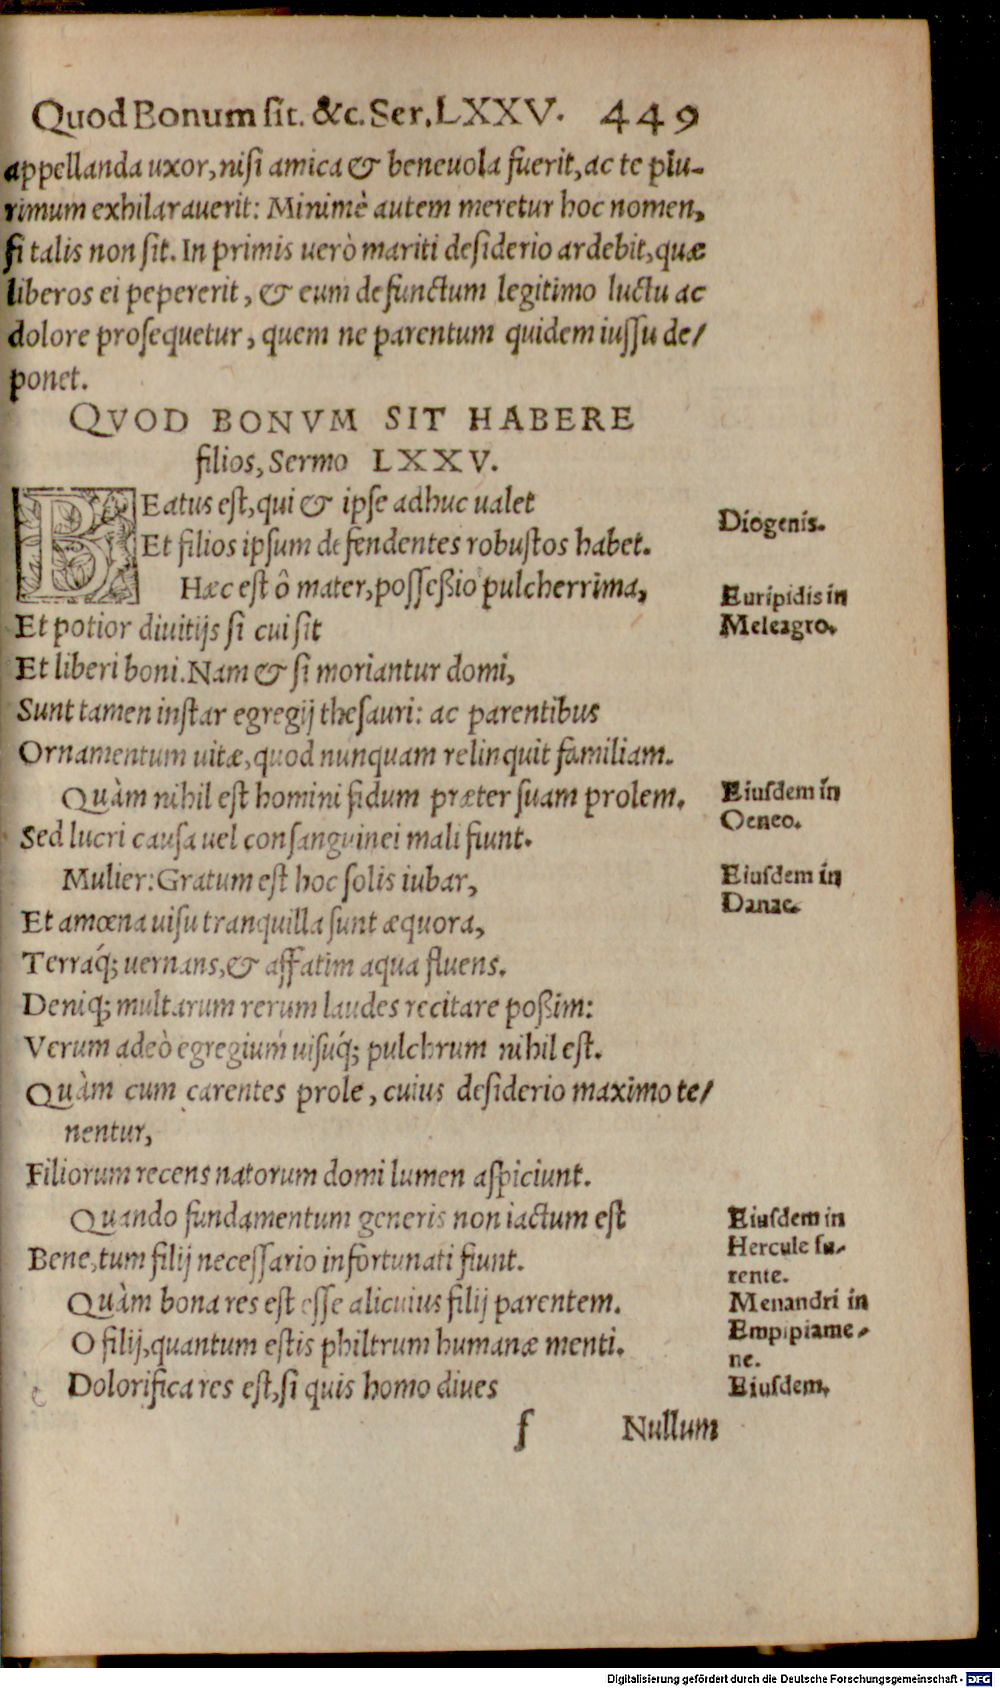 Quod Bonum sit. &c. Ser. LXXV. 449
appellanda uxor, nisi amica & beneuola fuerit, ac te plu-
rimum exhilarauerit: Minimè autem meretur hoc nomen,
si talis non sit. In primis uerò mariti desiderio ardebit, quæ
liberos ei pepererit, & eum defunctum legitimo luctu ac
dolore prosequetur, quem ne parentum quidem iussu de/
ponet.
QVOD BONVM SIT HABERE
filios, Sermo LXXV.
BEatus est, qui & ipse adhuc ualet
Diogenis.
Et filios ipsum defendentes robustos habet.
Hæc est ô mater, posseßio pulcherrima,
Euripidis in
Et potior diuitijs si cui sit
Meleagro.
Et liberi boni. Nam & si moriantur domi,
Sunt tamen instar egregij thesauri: ac parentibus
Ornamentum uitæ, quod nunquam relinquit familiam.
Quàm nihil est homini fidum præter suam prolem.
Eiusdem in
Oeneo.
Sed lucri causa uel consanguinei mali fiunt.
Mulier: Gratum est hoc solis iubar,
Eiusdem in
Danae.
Et amœna uisu tranquilla sunt æquora,
Terráq; uernans, & affatim aqua fluens.
Deniq; multarum rerum laudes recitare poßim:
Verum adeò egregium uisúq; pulchrum nihil est.
Quàm cum carentes prole, cuius desiderio maximo te/
nentur,
Filiorum recens natorum domi lumen aspiciunt.
Quando fundamentum generis non iactum est
Eiusdem in
Hercule fu-
rente.
Bene, tum filij necessario infortunati fiunt.
Quàm bona res est esse alicuius filij parentem.
Menandri in
Empipiame-
ne.
O filij, quantum estis philtrum humanæ menti.
Dolorifica res est, si quis homo diues
Eiusdem.
f Nullum
Digitalisierung gefördert durch die Deutsche Forschungsgemeinschaft - DFG